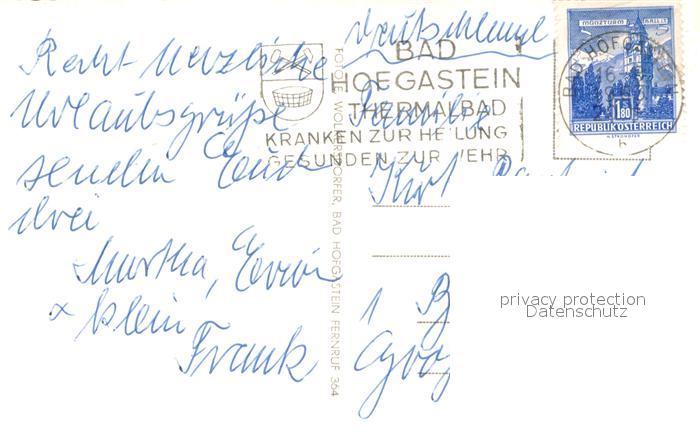 Recht Herzliche
Urlaubsgrüße
senden Euch
drei
Martha, Erwin
+ klein
Frank
FOTO: WOLKERSDORFER, BAD HOFGASTEIN FERNRUF 364
Deutschland
BAD
HOFGASTEIN
THERMALBAD
KRANKEN ZUR HEILUNG
GESUNDEN ZUR WEHR
MÜNZTURM HALL I.T.
1.80
REPUBLIK ÖSTERREICH
BAD HOFGASTEIN
h
Familie
Kurt
1 B
privacy protection
Datenschutz